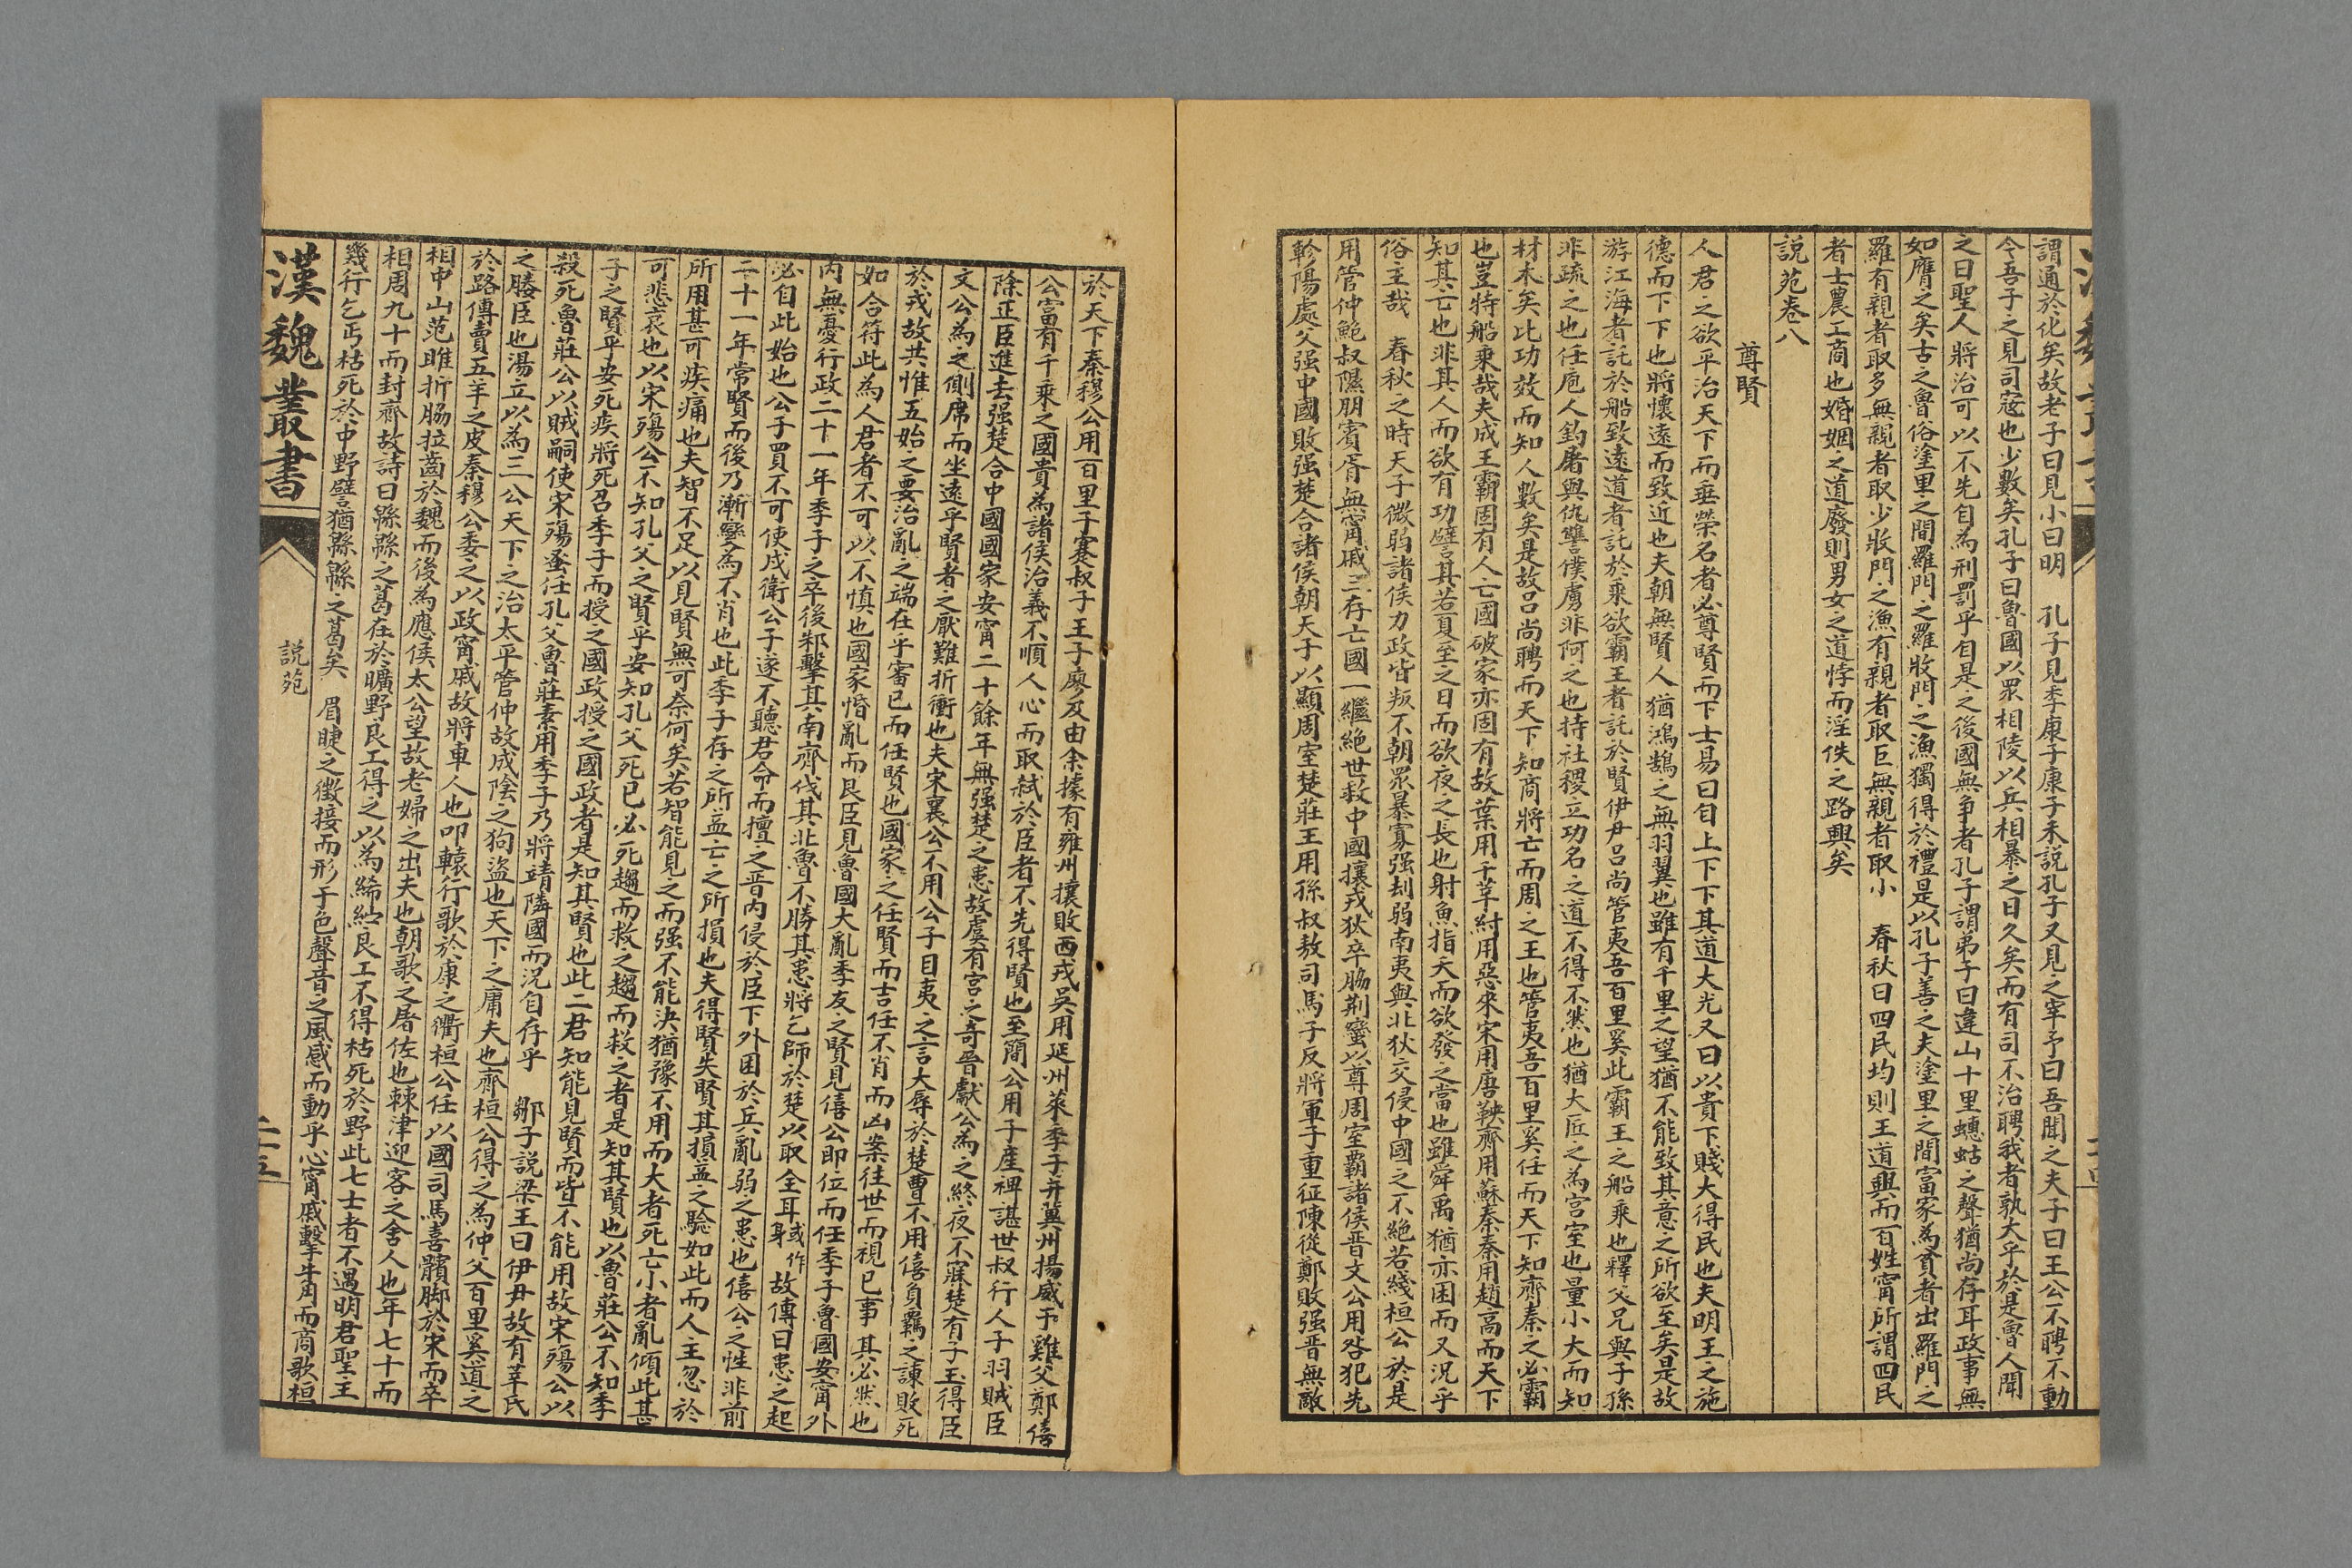 謂通於化矣故老子曰見小曰明　孔子見季康子康子未説孔子又見之宰予曰吾聞之夫子曰王公不聘不動
今吾子之見司寇也少數矣孔子曰魯國以眾相陵以兵相暴之日久矣而有司不治聘我者孰大乎於是魯人聞
之曰聖人將治可以不先自為刑罰乎自是之後國無争者孔子謂弟子曰違山十里蟪蛄之聲猶尚存耳政事無
如膺之矣古之魯俗塗里之間羅門之羅收門之漁獨得於禮是以孔子善之夫塗里之間富家為貧者出羅門之
羅有親者取多無親者取少收門之漁有親者取巨無親者取小　春秋曰四民均則王道興而百姓甯所謂四民
者士農工商也婚姻之道廢則男女之道悖而淫佚之路興矣
説苑卷八
尊賢
人君之欲平治天下而垂榮名者必尊賢而下士易曰自上下下其道大光又曰以貴下賤大得民也夫明王之施
德而下下也將懷遠而致近也夫朝無賢人猶鴻鵠之無羽翼也雖有千里之望猶不能致其意之所欲至矣是故
游江海者託於船致遠道者託於乘欲霸王者託於賢伊尹吕尚管夷吾百里奚此霸王之船乘也釋父兄與子孫
非疏之也任庖人釣屠與仇讐僕虜非阿之也持社稷立功名之道不得不然也猶大匠之為宫室也量小大而知
材木矣比功效而知人數矣是故吕尚聘而天下知商將亡而周之王也管夷吾百里奚任而天下知齊秦之必霸
也豈特船乘哉夫成王霸固有人亡國破家亦固有故葉用干莘紂用惡來宋用唐鞅齊用蘇秦秦用趙高而天下
知其亡也非其人而欲有功譬其若夏至之日而欲夜之長也射魚指天而欲發之當也雖舜禹猶亦困而又況乎
俗主哉　春秋之時天子微弱諸侯力政皆叛不朝眾暴寡强刦弱南夷與北狄交侵中國之不絕若綫桓公於是
用管仲鮑叔隰朋賓胥無甯戚三存亡國一繼絕世救中國攘戎狄卒脇荆蠻以尊周室霸諸侯晉文公用咎犯先
軫陽處父强中國敗强楚合諸侯朝天子以顯周室楚莊王用孫叔敖司馬子反將軍子重征陳從鄭敗强晉無敵
於天下秦穆公用百里子蹇叔子王子廖及由余據有雍州攘敗西戎吴用延州萊季子并冀州揚威于雞父鄭僖
公富有千乘之國貴為諸侯治義不順人心而取弑於臣者不先得賢也至簡公用子產裨諶世叔行人子羽賊臣
除正臣進去强楚合中國國家安甯二十餘年無强楚之患故虞有宫之奇晉獻公為之終夜不寐楚有子玉得臣
文公為之側席而坐遠乎賢者之厭難折衝也夫宋襄公不用公子目夷之言大辱於楚曹不用僖負羈之諫敗死
於戎故共惟五始之要治亂之端在乎審已而任賢也國家之任賢而吉任不肖而凶案往世而視已事其必然也
如合符此為人君者不可以不慎也國家惛亂而良臣見魯國大亂季友之賢見僖公即位而任季子魯國安甯外
内無憂行政二十一年季子之卒後邾擊其南齊伐其北魯不勝其患將乞師於楚以取全耳或作身故傳曰患之起
必自此始也公子買不可使戍衛公子遂不聽君命而擅之晋内侵於臣下外困於兵亂弱之患也僖公之性非前
二十一年常賢而後乃漸變為不肖也此季子存之所益亡之所損也夫得賢失賢其損益之驗如此而人主忽於
所用甚可疾痛也夫智不足以見賢無可奈何矣若智能見之而强不能決猶豫不用而大者死亡小者亂傾此甚
可悲哀也以宋殤公不知孔父之賢乎安知孔父死已必死趨而救之趨而救之者是知其賢也以魯莊公不知季
子之賢乎安死疾將死召季子而授之國政授之國政者是知其賢也此二君知能見賢而皆不能用故宋殤公以
殺死魯莊公以賊嗣使宋殤蚤任孔父魯莊素用季子乃將靖隣國而況自存乎　鄒子説梁王曰伊尹故有莘氏
之媵臣也湯立以為三公天下之治太平管仲故成陰之狗盗也天下之庸夫也齊桓公得之為仲父百里奚道之
於路傳賣五羊之皮秦穆公委之以政甯戚故將車人也叩轅行歌於康之衢桓公任以國司馬喜髕脚於宋而卒
相中山范雎折脇拉齒於魏而後為應侯太公望故老婦之出夫也朝歌之屠佐也棘津迎客之舍人也年七十而
相周九十而封齊故詩曰緜緜之葛在於曠野良工得之以為絺紵良工不得枯死於野此七士者不遇明君聖主
幾行乞丐枯死於中野譬猶緜緜之葛矣　眉睫之徵接而形于色聲音之風感而動乎心甯戚擊牛角而商歌桓
漢魏叢書
説苑
二十五